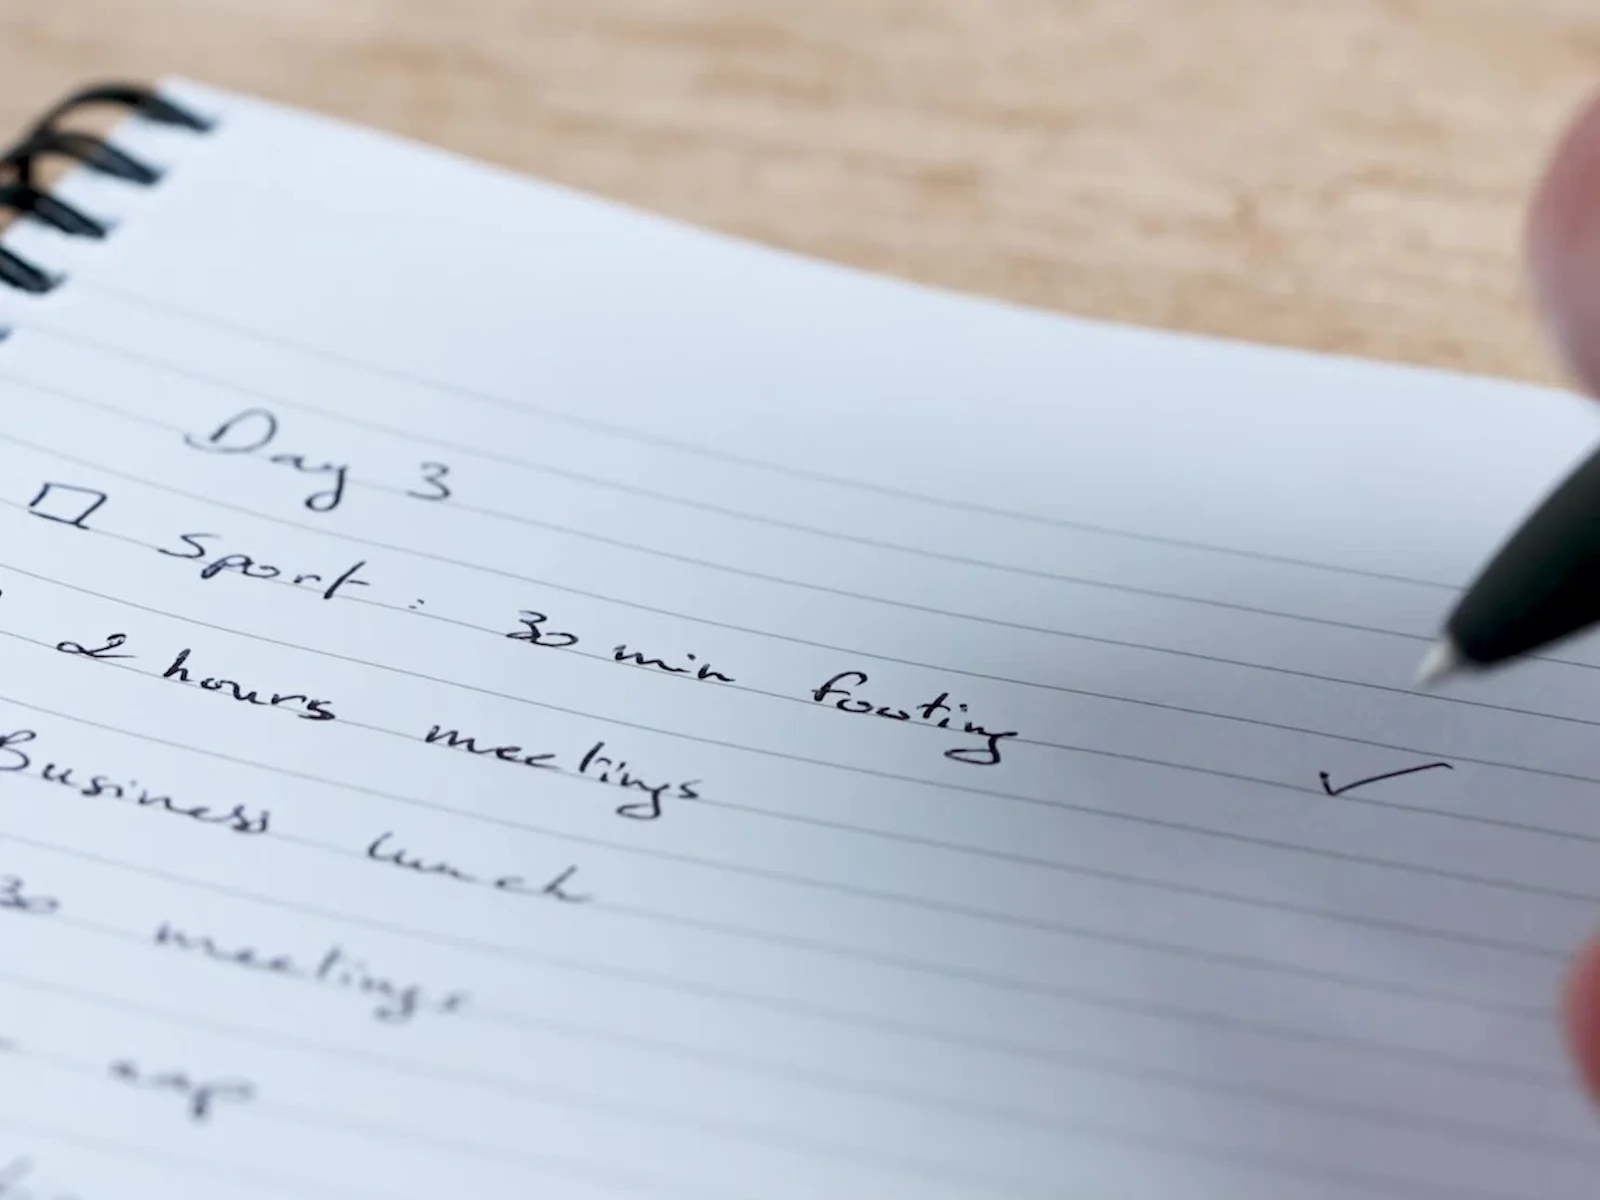 Day 3
Sport : 30 min footing ✓
2 hours meetings
Business lunch
30 meetings